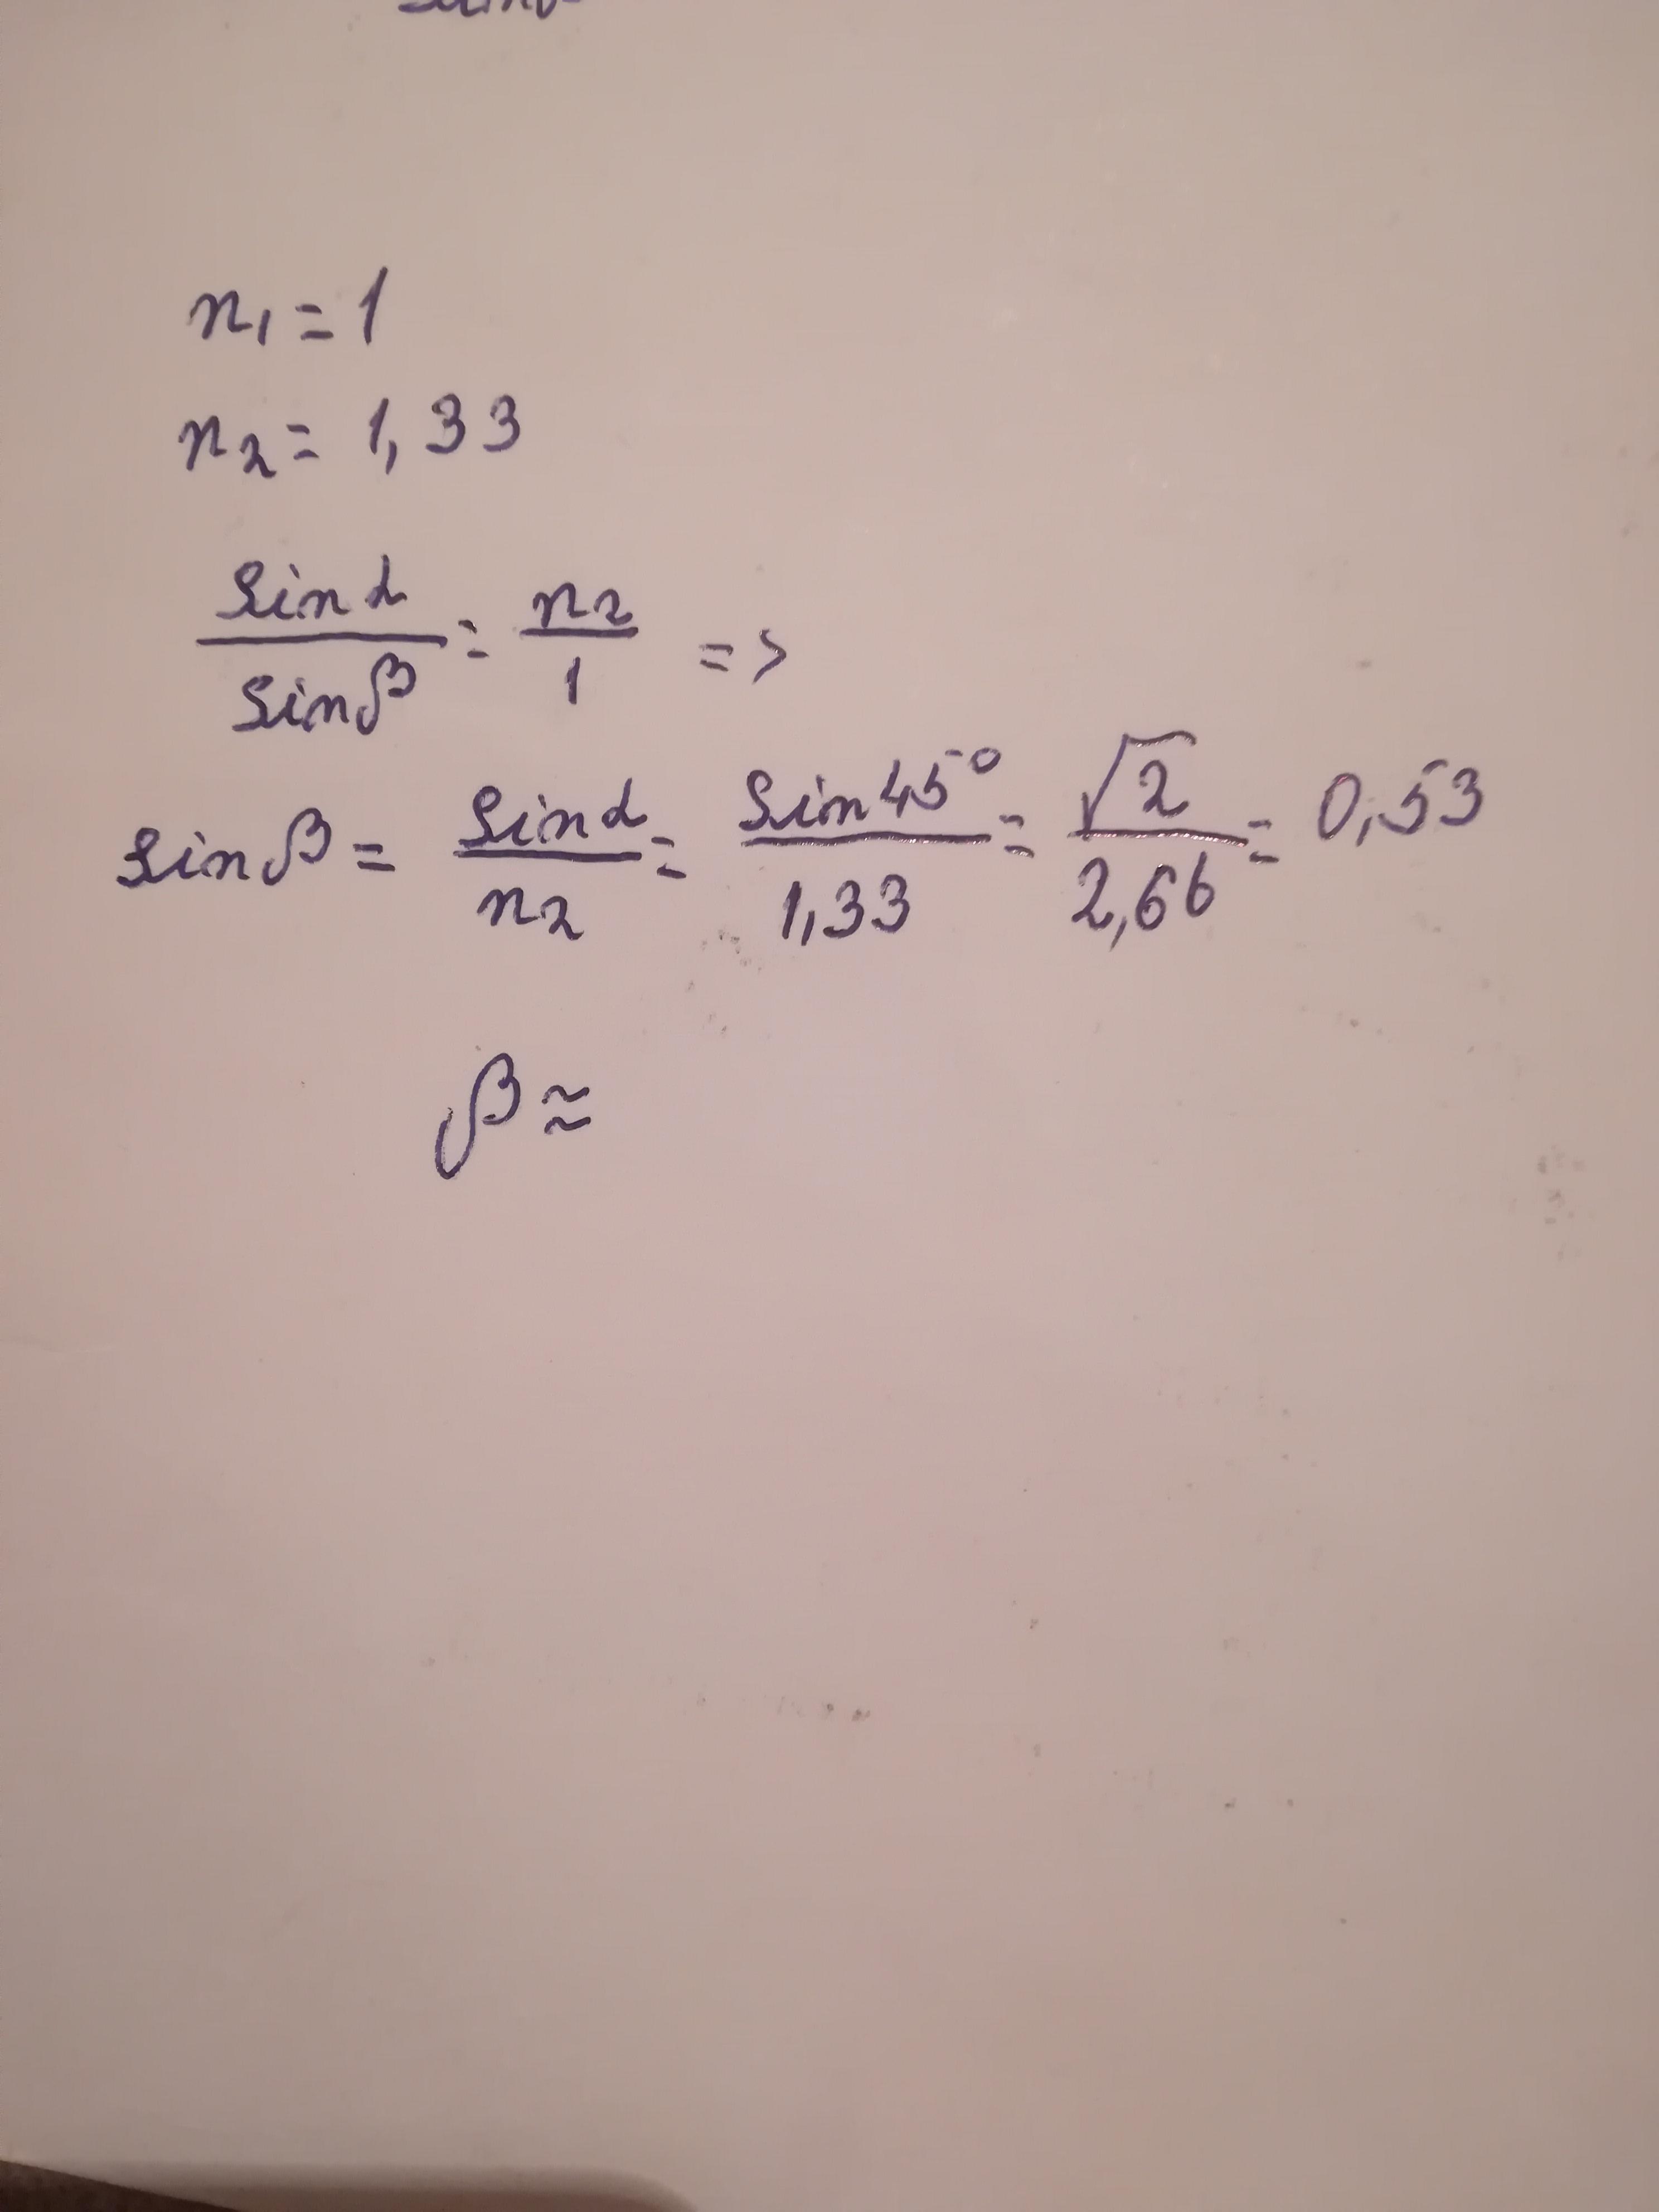 n₁ = 1
n₂ = 1,33
sin α / sin β = n₂ / 1 =>
sin β = sin α / n₂ = sin 45° / 1,33 = √2 / 2,66 = 0,53
β ≈